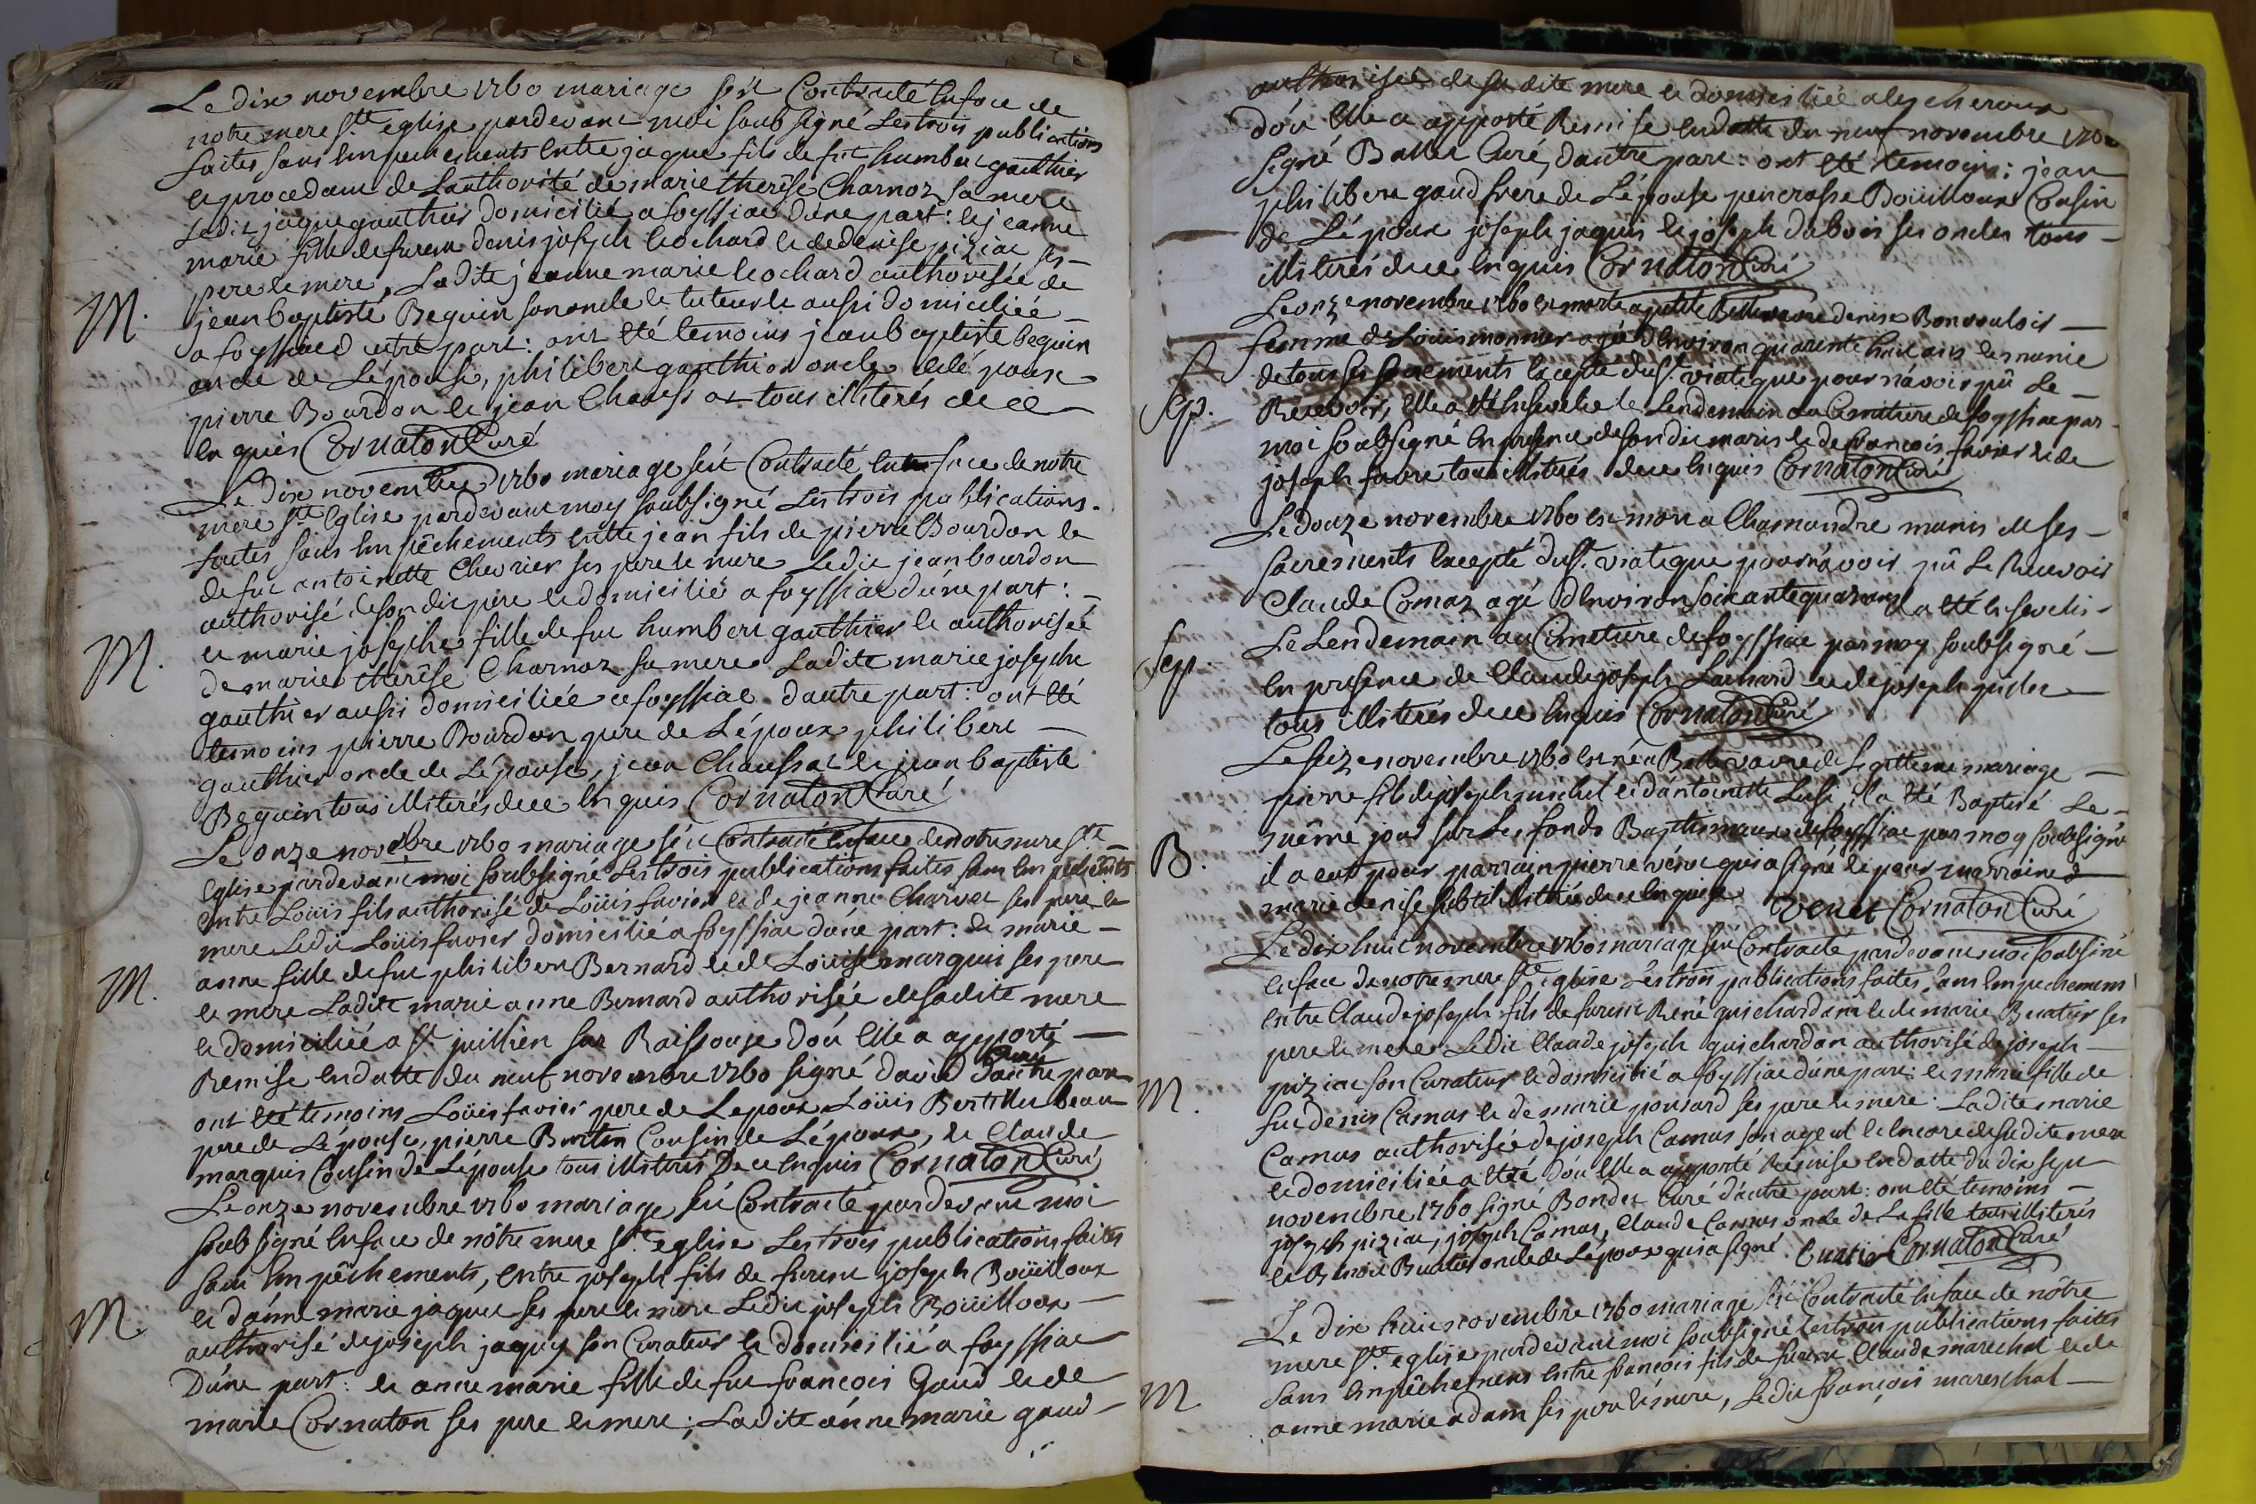 Le dix novembre 1760 mariage fût Contracté en face de
notre mere Ste eglise pardevant moi soub signé Les trois publications
faites sans Empechements Entre jaque fils de fut humber gauthier
et procedant de L'authorité de marie therêse Charnoz sa mere
Ledit jaque gauthier domicilié a foyssiac d'une part: et jeanne
marie fille de furent denis joseph Cochard et de denise piziac ses
pere et mere, Ladite jeanne marie Cochard authorisée de
M. jean baptiste Beguin son oncle et tuteur et aussi domiciliée
a foyssiac d'autre part: ont été temoins jean baptiste beguin
oncle de L'épouse, philibert gauthier oncle de L'époux
pierre Bourdon et jean Chaussat tous illiterés de ce
Enquis Cornaton Curé
Le dix novembre 1760 mariage fût Contracté en face de notre
mere Ste Eglise pardevant moy soubsigné Les trois publications
faites sans Empêchements Entre jean fils de pierre Bourdon et
de fut antoinette Chevrier ses pere et mere Ledit jean bourdon
authorisé de son dit pere et domicilié a foyssiac d'une part:
M. et marie josephe fille de fut humbert gauthier et authorisée
de marie therêse Charnoz sa mere Ladite marie josephe
gauthier aussi domiciliée a foyssiac d'autre part: ont été
temoins pierre Bourdon pere de L'époux philibert
gauthier oncle de L'épouse, jean Chaussat et jean baptiste
Beguin tous illiterés de ce Enquis Cornaton Curé
Le onze novembre 1760 mariage fût Contracté en face de notre mere Ste
Eglise pardevant moi soubsigné Les trois publications faites sans Empechements
entre Loüis fils authorisé de Loüis favier et de jeanne Charvet ses pere et
mere Ledit Loüis favier domicilié a foyssiac d'une part: de marie
M. anne fille de fut philibert Bernard et de Loüise marquis ses pere
et mere Ladite marie anne Bernard authorisée de sadite mere
et domiciliée a St jullien sur Raissouse d'où Elle a apporté
Remise en datte du neuf novembre 1760 signé david Curé d'autre part
ont été temoins Loüis favier pere de Lepoux Loüis Bertillet beau
pere de L'épouse, pierre Burtin Cousin de L'époux, et Claude
marquis Cousin de L'épouse tous illiterés De ce Enquis Cornaton Curé
Le onze novembre 1760 mariage fût Contracté pardevant moi
soub signé En face de nôtre mere Ste eglise Les trois publications faites
sans Empêchements, Entre joseph fils de furent joseph Boüilloux
et d'anne marie jaquet ses pere et mere Ledit joseph Boüilloux
M. authorisé de joseph jaquis son Curateur et domicilié a foyssiac
D'une part: et anne marie fille de fut francois Gaud et de
marie Cornaton ses pere et mere; Ladite anne marie gaud
authorisée de sa dite mere et domiciliée a lescheroux
d'où Elle a apporté Remise en datte du neuf novembre 1760
signé Ballet Curé, d'autre part: ont été temoins: jean
philibert gaud frere de L'épouse pancrasse Boüilloux Cousin
de L'époux joseph jaquis et joseph dubois ses oncles tous
illiterés de ce Enquis Cornaton Curé
Le onze novembre 1760 est morte a petite Bellevavre denise Bonvouloir
femme de Loüis monnier agée d'Environ quarente huit ans et munie
de tous ses sacrements Excepté du St viatique pour n'avoir pû Le
Sep. Recevoir, Elle a été Ensevelie le Lendemain au Cimetiere de foyssiac par
moi soubsigné En presence de son dit mari et de francois favier et de
joseph favre tous illiterés de ce Enquis Cornaton Curé
Le douze novembre 1760 est mort a Chamandre munis de ses
sacrements Excepté du St viatique pour n'avoir pû Le Recevoir
Claude Comaz agé d'Environ soixante quatre ans a été Enseveli
Sep. Le Lendemain au Cimetiere de foyssiac par moy soubsigné
En presence de Claude joseph Lachard et de joseph pidet
tous illiterés de ce Enquis Cornaton Curé
Le seize novembre 1760 est né a Bellevavre de legitime mariage
pierre fils de joseph michel et d'antoinette Lusi, il a été Baptisé Le
même jour sur Les fonds Baptismaux de foyssiac par moy soubsigné
B. il a eut pour parrain pierre vénet qui a signé et pour marraine
marie denise subtil illitrée de ce Enquise Venet Cornaton Curé
Le dix huit novembre 1760 mariage fût Contracté pardevant moi soubsiné
en face de notre mere Ste eglise Les trois publications faites sans Empechemens
entre Claude joseph fils de furent René guichardan et de marie Buatier ses
pere et mere Ledit Claude joseph guichardan authorisé de joseph
M. piziac son Curateur et domicilié a foyssiac d'une part: et marie fille de
fut denis Camus et de marie ponsard ses pere et mere Ladite marie
Camus authorisée de joseph Camus son ayeul et Encore de sadite mere
et domiciliée a étré d'où Elle a apporté Remise en datte du dix sept
novembre 1760 signé Bondet Curé d'autre part: ont été temoins
joseph piziac, joseph Camus, Claude Camus oncle de La fille tous illiterés
et Benoit Buatier oncle de L'époux qui a signé. Buatier Cornaton Curé
Le dix huit novembre 1760 mariage fût Contracté En face de nôtre
mere Ste eglise pardevant moi soubsigné Les trois publications faites
sans Empêchemens Entre francois fils de furent Claude marechal et de
M. anne marie adam ses pere et mere, Ledit françois mareschal